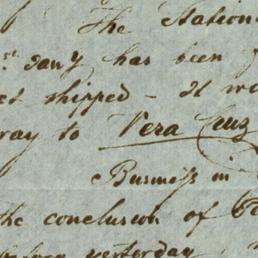 The Station
st Jan'y has been
shipped - It
way to Vera Cruz
Business in
the conclusion of
yesterday